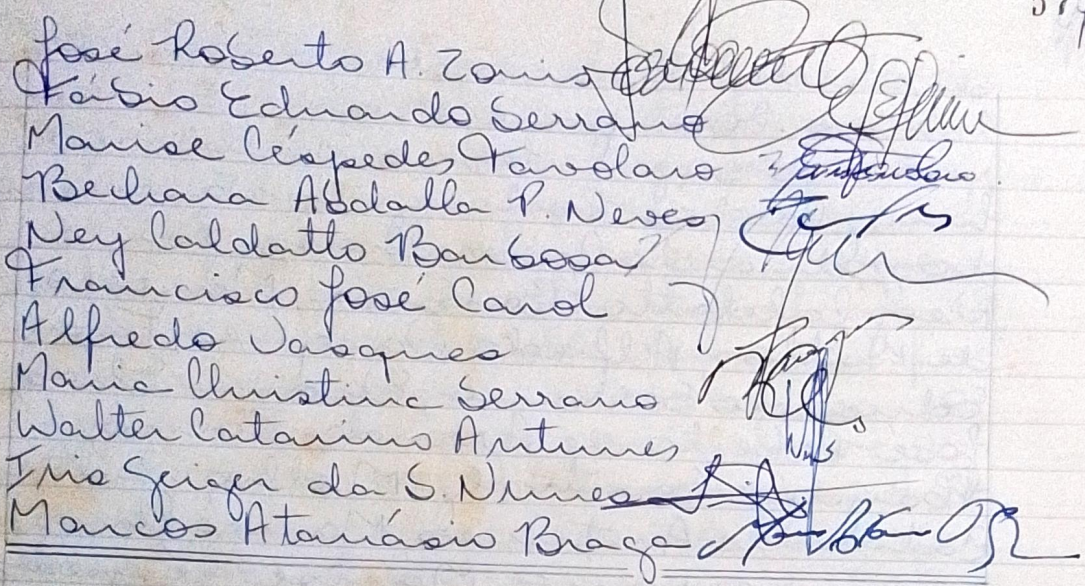 José Roberto A. Zanis
Fábio Eduardo Serrano
Marise Céspedes Tavolaro
Bechara Abdalla P. Neves
Ney Caldatto Barbosa
Francisco José Carol
Alfredo Vasques
Maria Christina Serrano
Walter Catarino Antunes
Iris Geiger da S. Nunes
Marcos Atanásio Braga